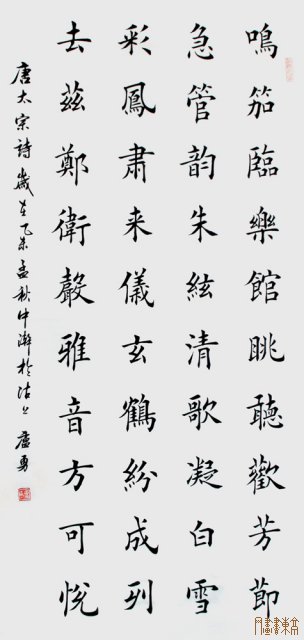 鳴笳臨樂館眺聽歡芳節
急管韵朱絃清歌凝白雪
彩鳳肅来儀玄鶴紛成列
去茲鄭衛聲雅音方可悅
唐太宗詩歲在乙未孟秋中澣於沽上盧勇